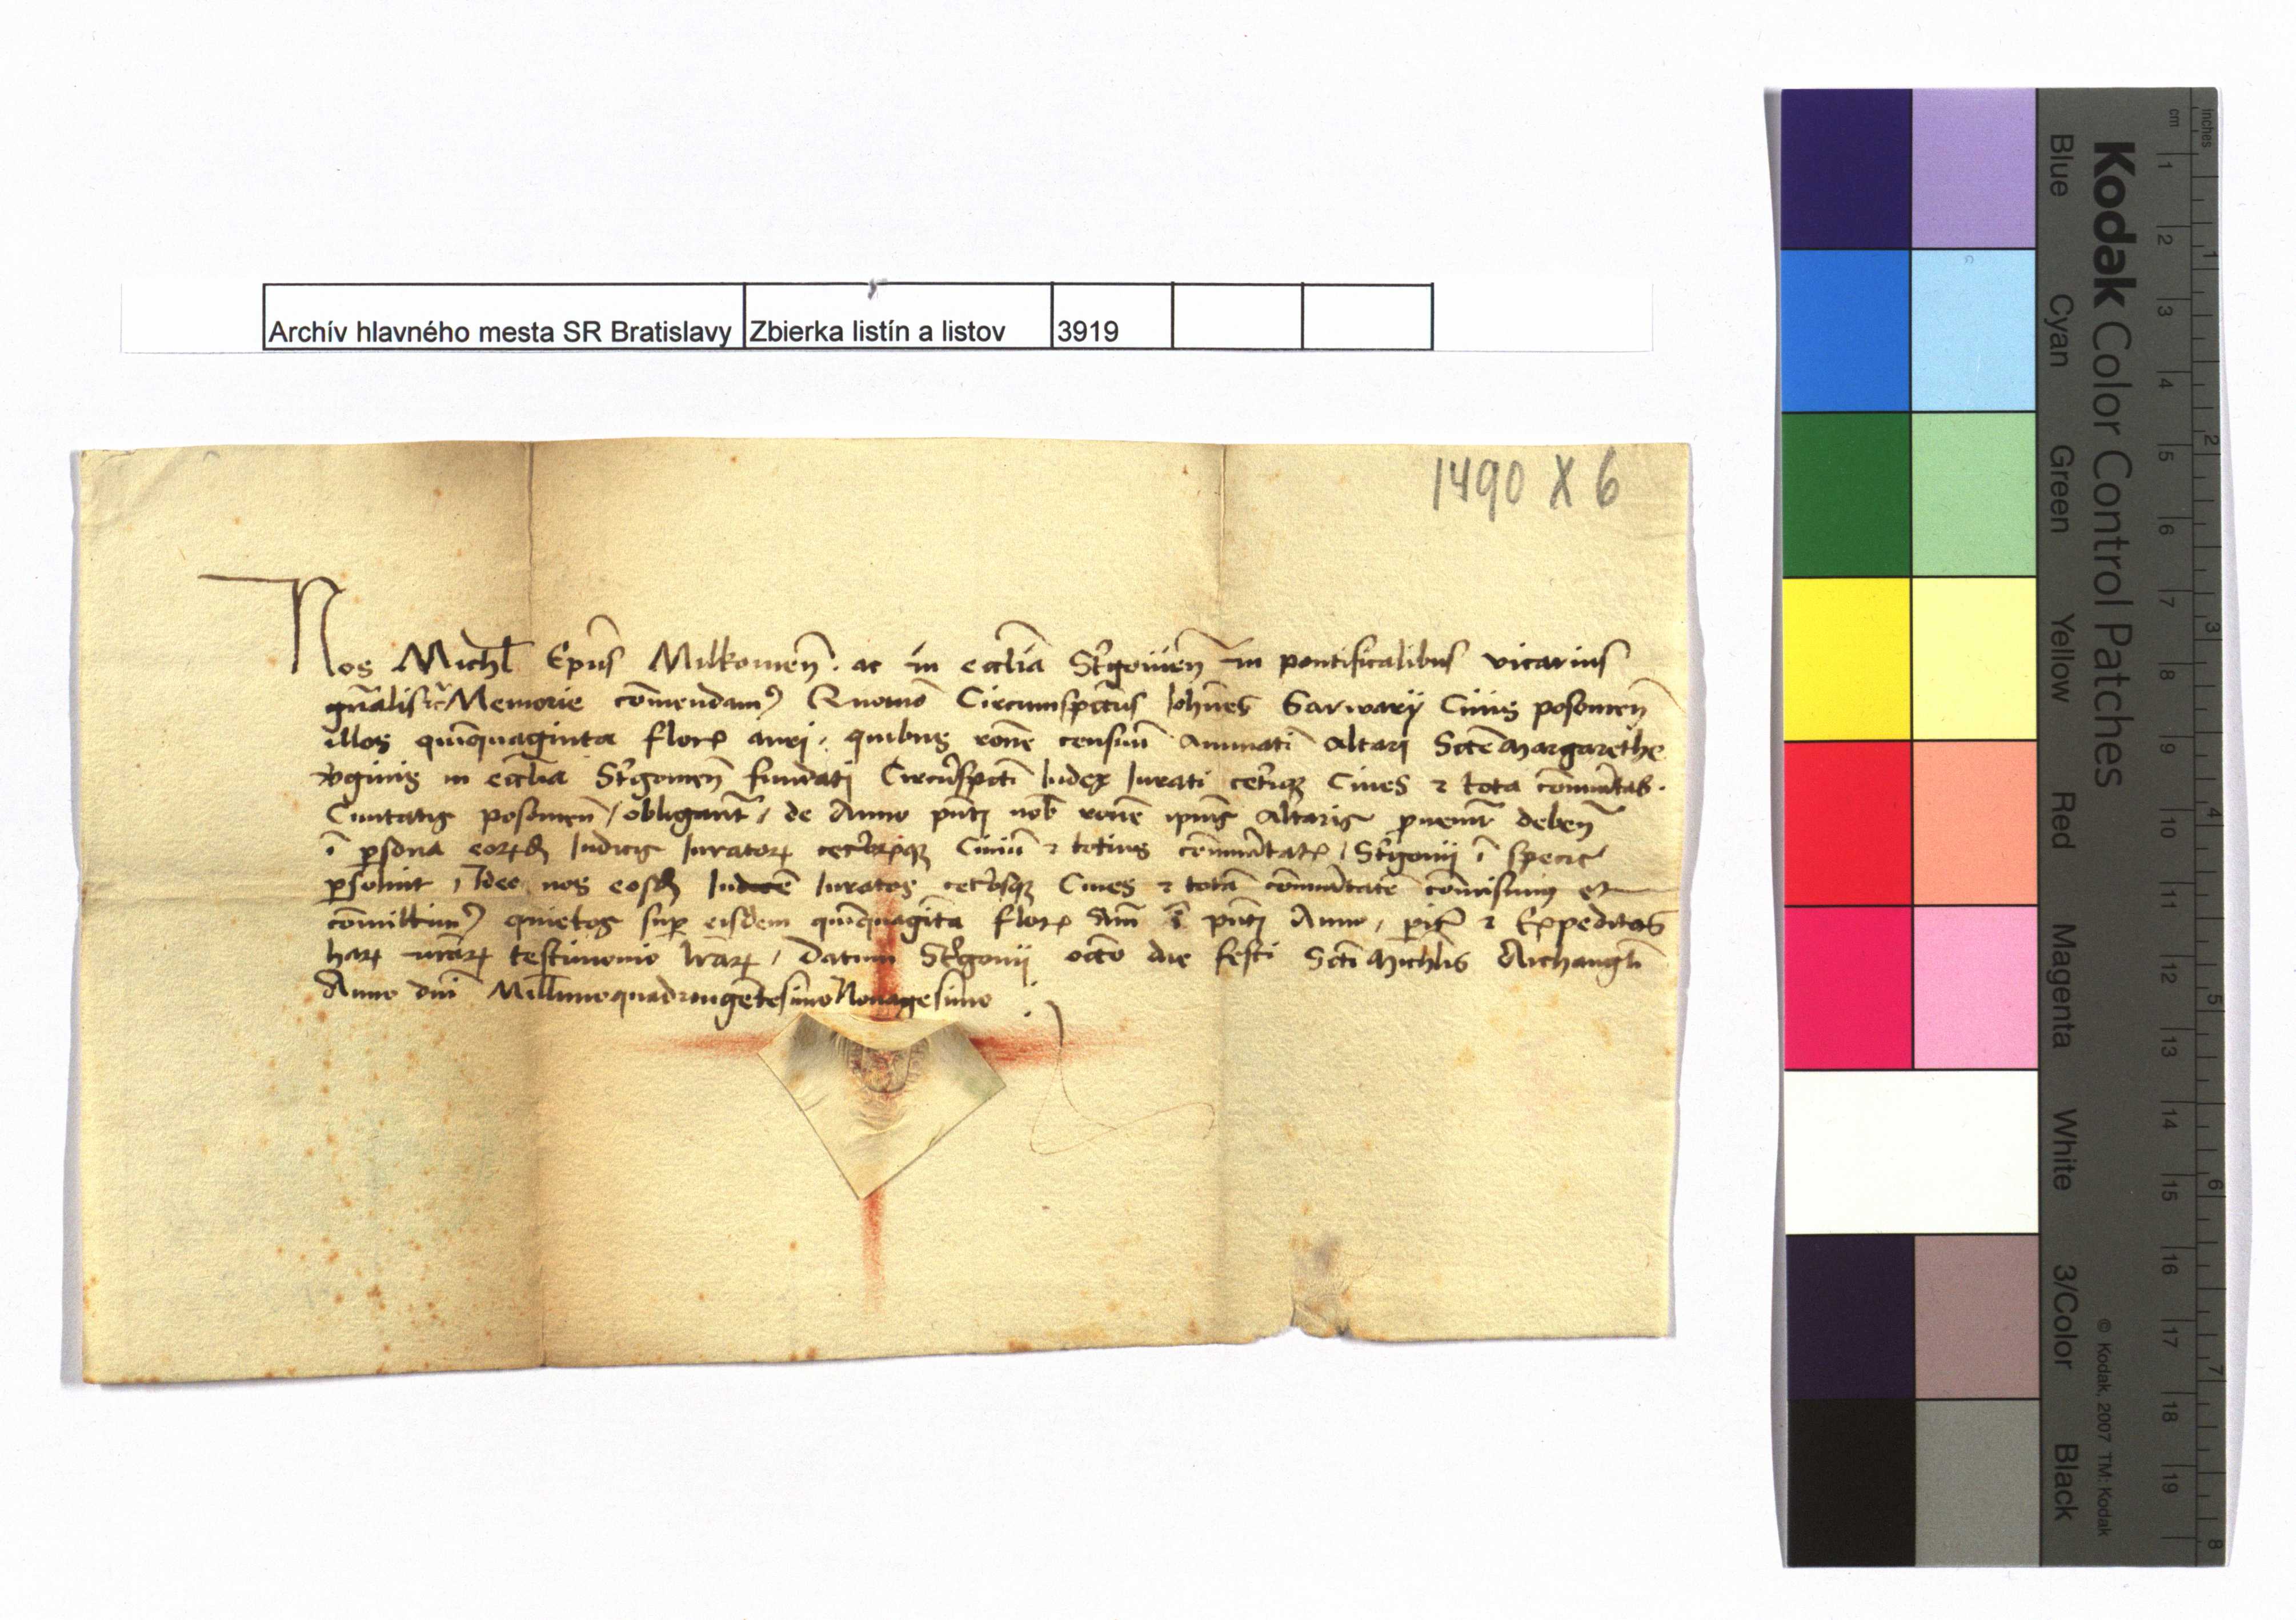 Archív hlavného mesta SR Bratislavy Zbierka listín a listov 3919
1490 X 6
Nos Michl Epus Milkouien. ac in ecclia Strigonien in pontificalibus vicarius
gnalis Memorie comendam Quomo Circumspectus Iohnes Sarwary Ciuis posonien
illos quinquaginta flor auri, quibus rone censuu Annuati Altari Scte Margarethe
virginis in ecclia Strigonien fundati Circumspecti Iudex Iurati ceterique Ciues et tota comunitas
Ciuitatis posonien / obligant, de Anno pnti nob rone ipius Altaris prouenir deben
i psona eorund Iudicis Iurator ceterorumque Ciuiu et totius comunitatis, Strigonij i specie
psoluit, Ideo nos eosd Iudicem Iuratos ceterosque Ciues et tota comunitate comisimus et
comittim quietos sup eisdem quinquaginta flor Au i pnti Anno, et Expeditos
har nrar testimonio lrar, Datum Strigonij octo die festi Scti Michlis Archangli
Anno dni Millimoquadringetesimo Nonagesimo
Kodak Color Control Patches
Blue Cyan Green Yellow Red Magenta White 3/Color Black
© Kodak, 2007 TM: Kodak
inches 1 2 3 4 5 6 7 8
cm 1 2 3 4 5 6 7 8 9 10 11 12 13 14 15 16 17 18 19